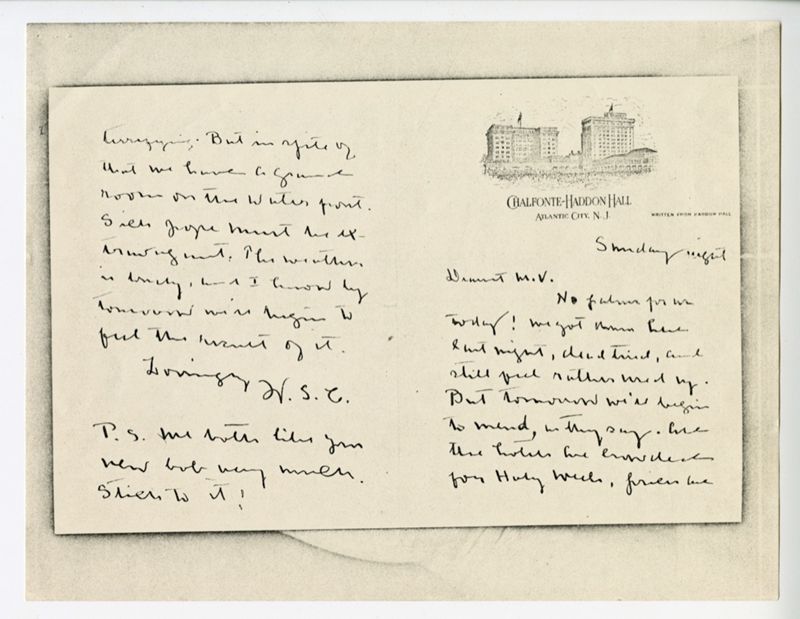 CHALFONTE-HADDON HALL
ATLANTIC CITY, N. J.
WRITTEN FROM HADDON HALL
Sunday night
Dearest M.V.
No palms for us
today! We got down here
last night, dead tired, and
still feel rather used up.
But tomorrow we'll begin
to mend, as they say. All
the hotels are crowded
for Holy Week, prices are
terrifying. But in spite of
that we have a grand
room on the water front.
Sick folk must be ex-
travagant. The weather
is lovely, and I know by
tomorrow we'll begin to
feel the result of it.
Lovingly
W. S. C.
P. S. We both like your
new bob very much.
Stick to it!